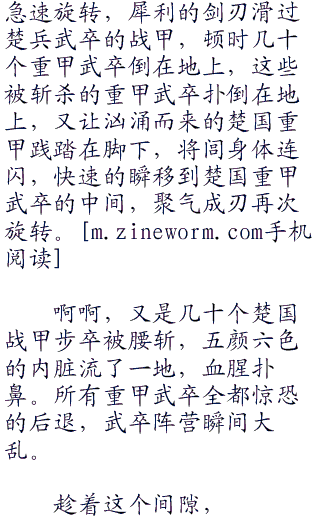 急速旋转，犀利的剑刃滑过
楚兵武卒的战甲，顿时几十
个重甲武卒倒在地上，这些
被斩杀的重甲武卒扑倒在地
上，又让汹涌而来的楚国重
甲践踏在脚下，将闾身体连
闪，快速的瞬移到楚国重甲
武卒的中间，聚气成刃再次
旋转。[m.zineworm.com手机
阅读]
啊啊，又是几十个楚国
战甲步卒被腰斩，五颜六色
的内脏流了一地，血腥扑
鼻。所有重甲武卒全都惊恐
的后退，武卒阵营瞬间大
乱。
趁着这个间隙，